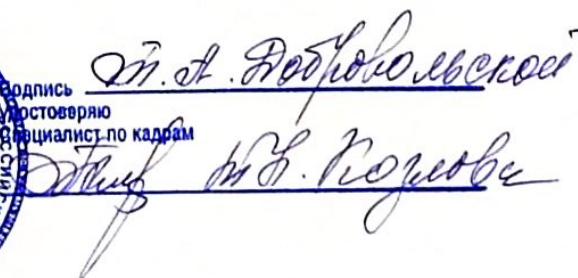 Подпись Т. А. Добровольской
Удостоверяю
Специалист по кадрам
Т.Н. Козлова